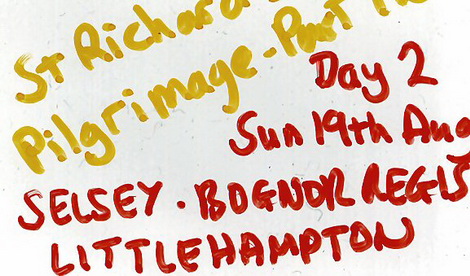 St Richard
Pilgrimage - Part
Day 2
Sun 19th Aug
SELSEY . BOGNOR REGIS
LITTLEHAMPTON